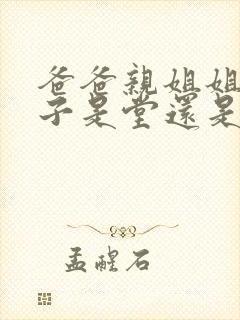 爸爸親姐姐
子是堂還是
孟醒石